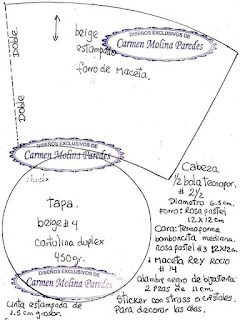 Doble.
Doble
beige
estampado
forro de maceta.
DISEÑOS EXCLUSIVOS DE
Carmen Molina Paredes
DISEÑOS EXCLUSIVOS DE
Carmen Molina Paredes
Tapa.
beige #4
cartulina duplex
450gr.
DISEÑOS EXCLUSIVOS DE
Carmen Molina Paredes
Cinta estampada de
2.5 cm grosor.
Cabeza
1/2 bola tecnopor.
# 2 1/2
Diametro 6.5cm.
Forro: Rosa pastel
12 x 12 cm
Cara: Termoforma
bomboncita mediana.
Rosa pastel #3 12x12cm.
1 Maceta Rey Rocio
# 14
alambre negro de bijutería:
2 pzas de 11 cm.
Sticker con strass o cristales.
Para decorar las alas.